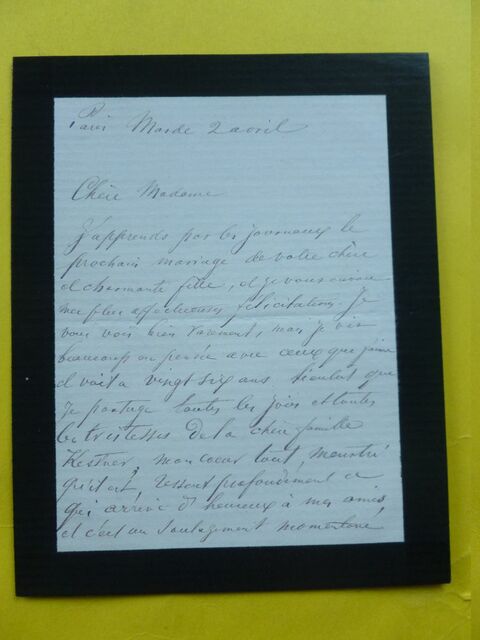 Paris Mardi 2 avril
Chère Madame
J'apprends par les journaux le
prochain mariage de votre chère
et charmante fille, et je vous envoie
mes plus affectueuses félicitations. Je
vous vois bien rarement, mais je vis
beaucoup en pensée avec ceux que j'aime
et voilà vingt six ans bientôt que
Je partage toutes les joies et toutes
les tristesses de la chère famille
Kestner, mon coeur tout meurtri
qu'il est, ressent profondément ce
qui arrive d'heureux à mes amis,
et c'est un soulagement momentané